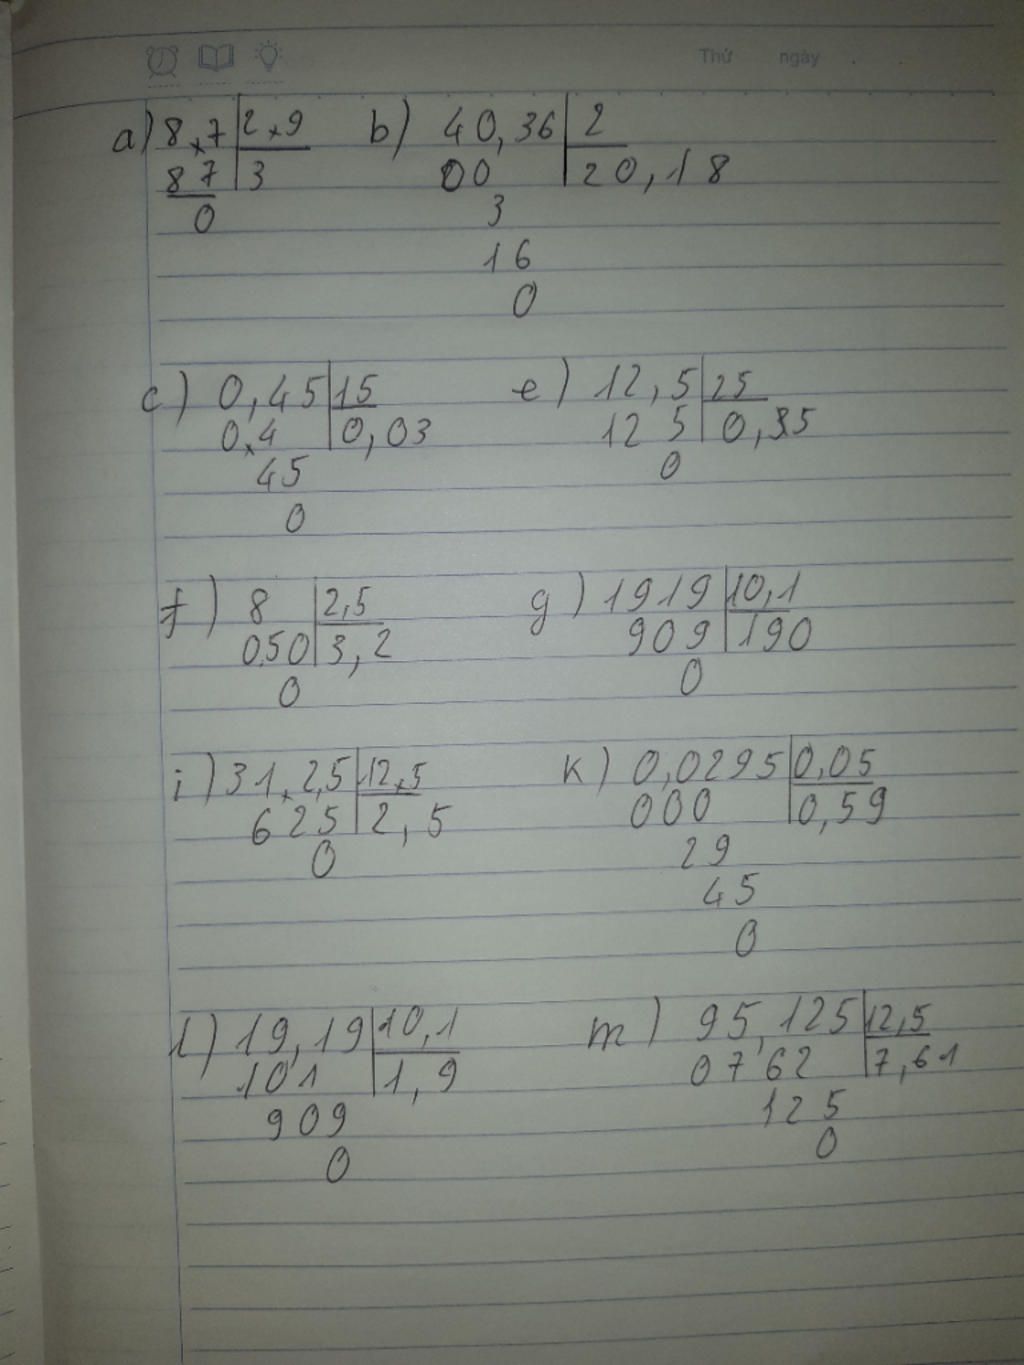 Thứ ngày .
a) 8,7 2,9 b) 40,36 2
87 3 00 20,18
0 3
16
0
c) 0,45 15 e) 12,5 25
0,4 0,03 12 5
45 0
0
f) 8 2,5 g) 1919 10,1
050 3,2 909 190
0 0
i) 31,2,5 12,5 k) 0,0295 0,05
625 2,5 000 0,59
0 29
45
0
l) 19,19 10,1 m) 95,125 12,5
101 1,9 0762 7,61
909 125
0 0